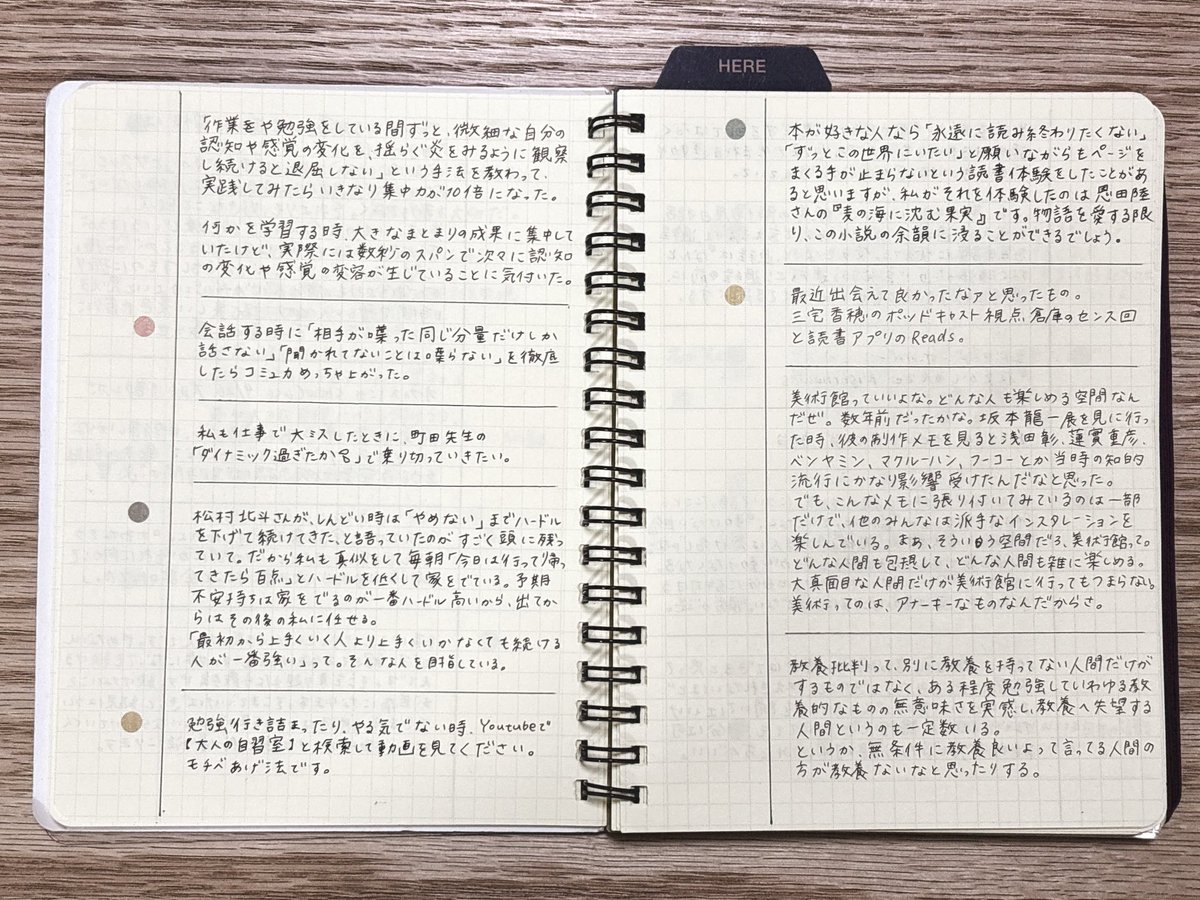 HERE
「作業をや勉強をしている間ずっと、微細な自分の
認知や感覚の変化を、揺らぐ炎をみるように観察
し続けると退屈しない」という手法を教わって、
実践してみたらいきなり集中力が10倍になった。
何かを学習する時、大きなまとまりの成果に集中して
いたけど、実際には数秒のスパンで次々に認知
の変化や感覚の変容が生じていることに気付いた。
会話する時に「相手が喋った同じ分量だけしか
話さない」「聞かれてないことは喋らない」を徹底
したらコミュ力めっちゃ上がった。
私も仕事で大ミスしたときに、町田先生の
「ダイナミック過ぎたか…」で乗り切っていきたい。
松村北斗さんが、しんどい時は「やめない」までハードル
を下げて続けてきた、と語っていたのがすごく頭に残っ
ていて。だから私も真似をして毎朝「今日は行って帰っ
てきたら百点」とハードルを低くして家をでている。予期
不安持ちは家をでるのが一番ハードル高いから、出てか
らはその後の私に任せる。
「最初から上手くいく人より上手くいかなくても続ける
人が一番強い」って。そんな人を目指している。
勉強行き詰まったり、やる気でない時、Youtubeで
【大人の自習室】と検索して動画を見てください。
モチベあげ法です。
本が好きな人なら「永遠に読み終わりたくない」
「ずっとこの世界にいたい」と願いながらもページを
まくる手が止まらないという読書体験をしたことがあ
ると思いますが、私がそれを体験したのは恩田陸
さんの『麦の海に沈む果実』です。物語を愛する限
り、この小説の余韻に浸ることができるでしょう。
最近出会えて良かったなァと思ったもの。
三宅香穂のポッドキャスト視点倉庫のセンス回
と読書アプリのReads。
美術館っていいよな。どんな人も楽しめる空間なん
だぜ。数年前だったかな。坂本龍一展を見に行っ
た時、彼の制作メモを見ると浅田彰、蓮實重彦、
ベンヤミン、マクルーハン、フーコーとか当時の知的
流行にかなり影響受けたんだなと思った。
でも、こんなメモに張り付いてみているのは一部
だけで、他のみんなは派手なインスタレーションを
楽しんでいる。まぁ、そういう空間だろ、美術館って。
どんな人間も包摂して、どんな人間も雑に楽しめる。
大真面目な人間だけが美術館に行ってもつまらない。
美術ってのは、アナーキーなものなんだからさ。
教養批判って、別に教養を持ってない人間だけが
するものではなく、ある程度勉強していわゆる教
養的なものの無意味さを実感し、教養へ失望する
人間というのも一定数いる。
というか、無条件に教養良いよって言ってる人間の
方が教養ないなと思ったりする。